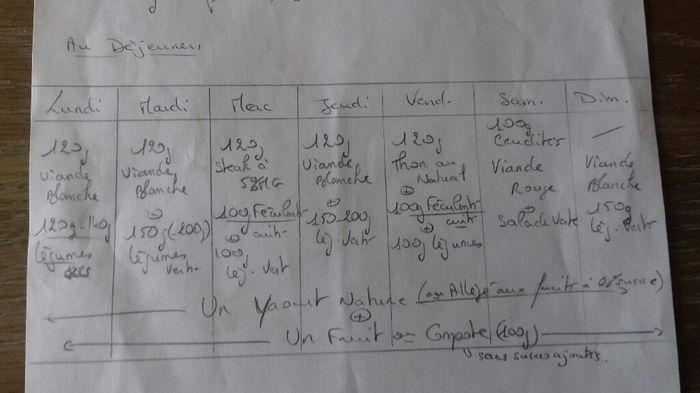 Au Déjeuner
Lundi Mardi Merc Jeudi Vend. Sam. Dim.
120g Viande Blanche 120g-140g légumes
120g Viande Blanche + 150g (-200g) légumes verts
120g Steak à 5% MG 100g Féculents cuits + 100g lég. vert
120g Viande Blanche + 150-200g lég. vert
120g Thon au Naturel + 100g Féculents cuits + 100g légumes
100g Crudités Viande Rouge + Salade verte
— Viande Blanche 150g lég. vert
Un Yaourt Nature (ou Allégé aux fruits à 0% sucre)
+
Un Fruit ou Compote (100g)
sans sucres ajoutés.